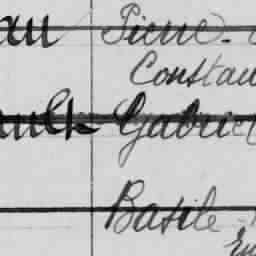 au Pierre -
Constan
ault Gabriel
Basile -